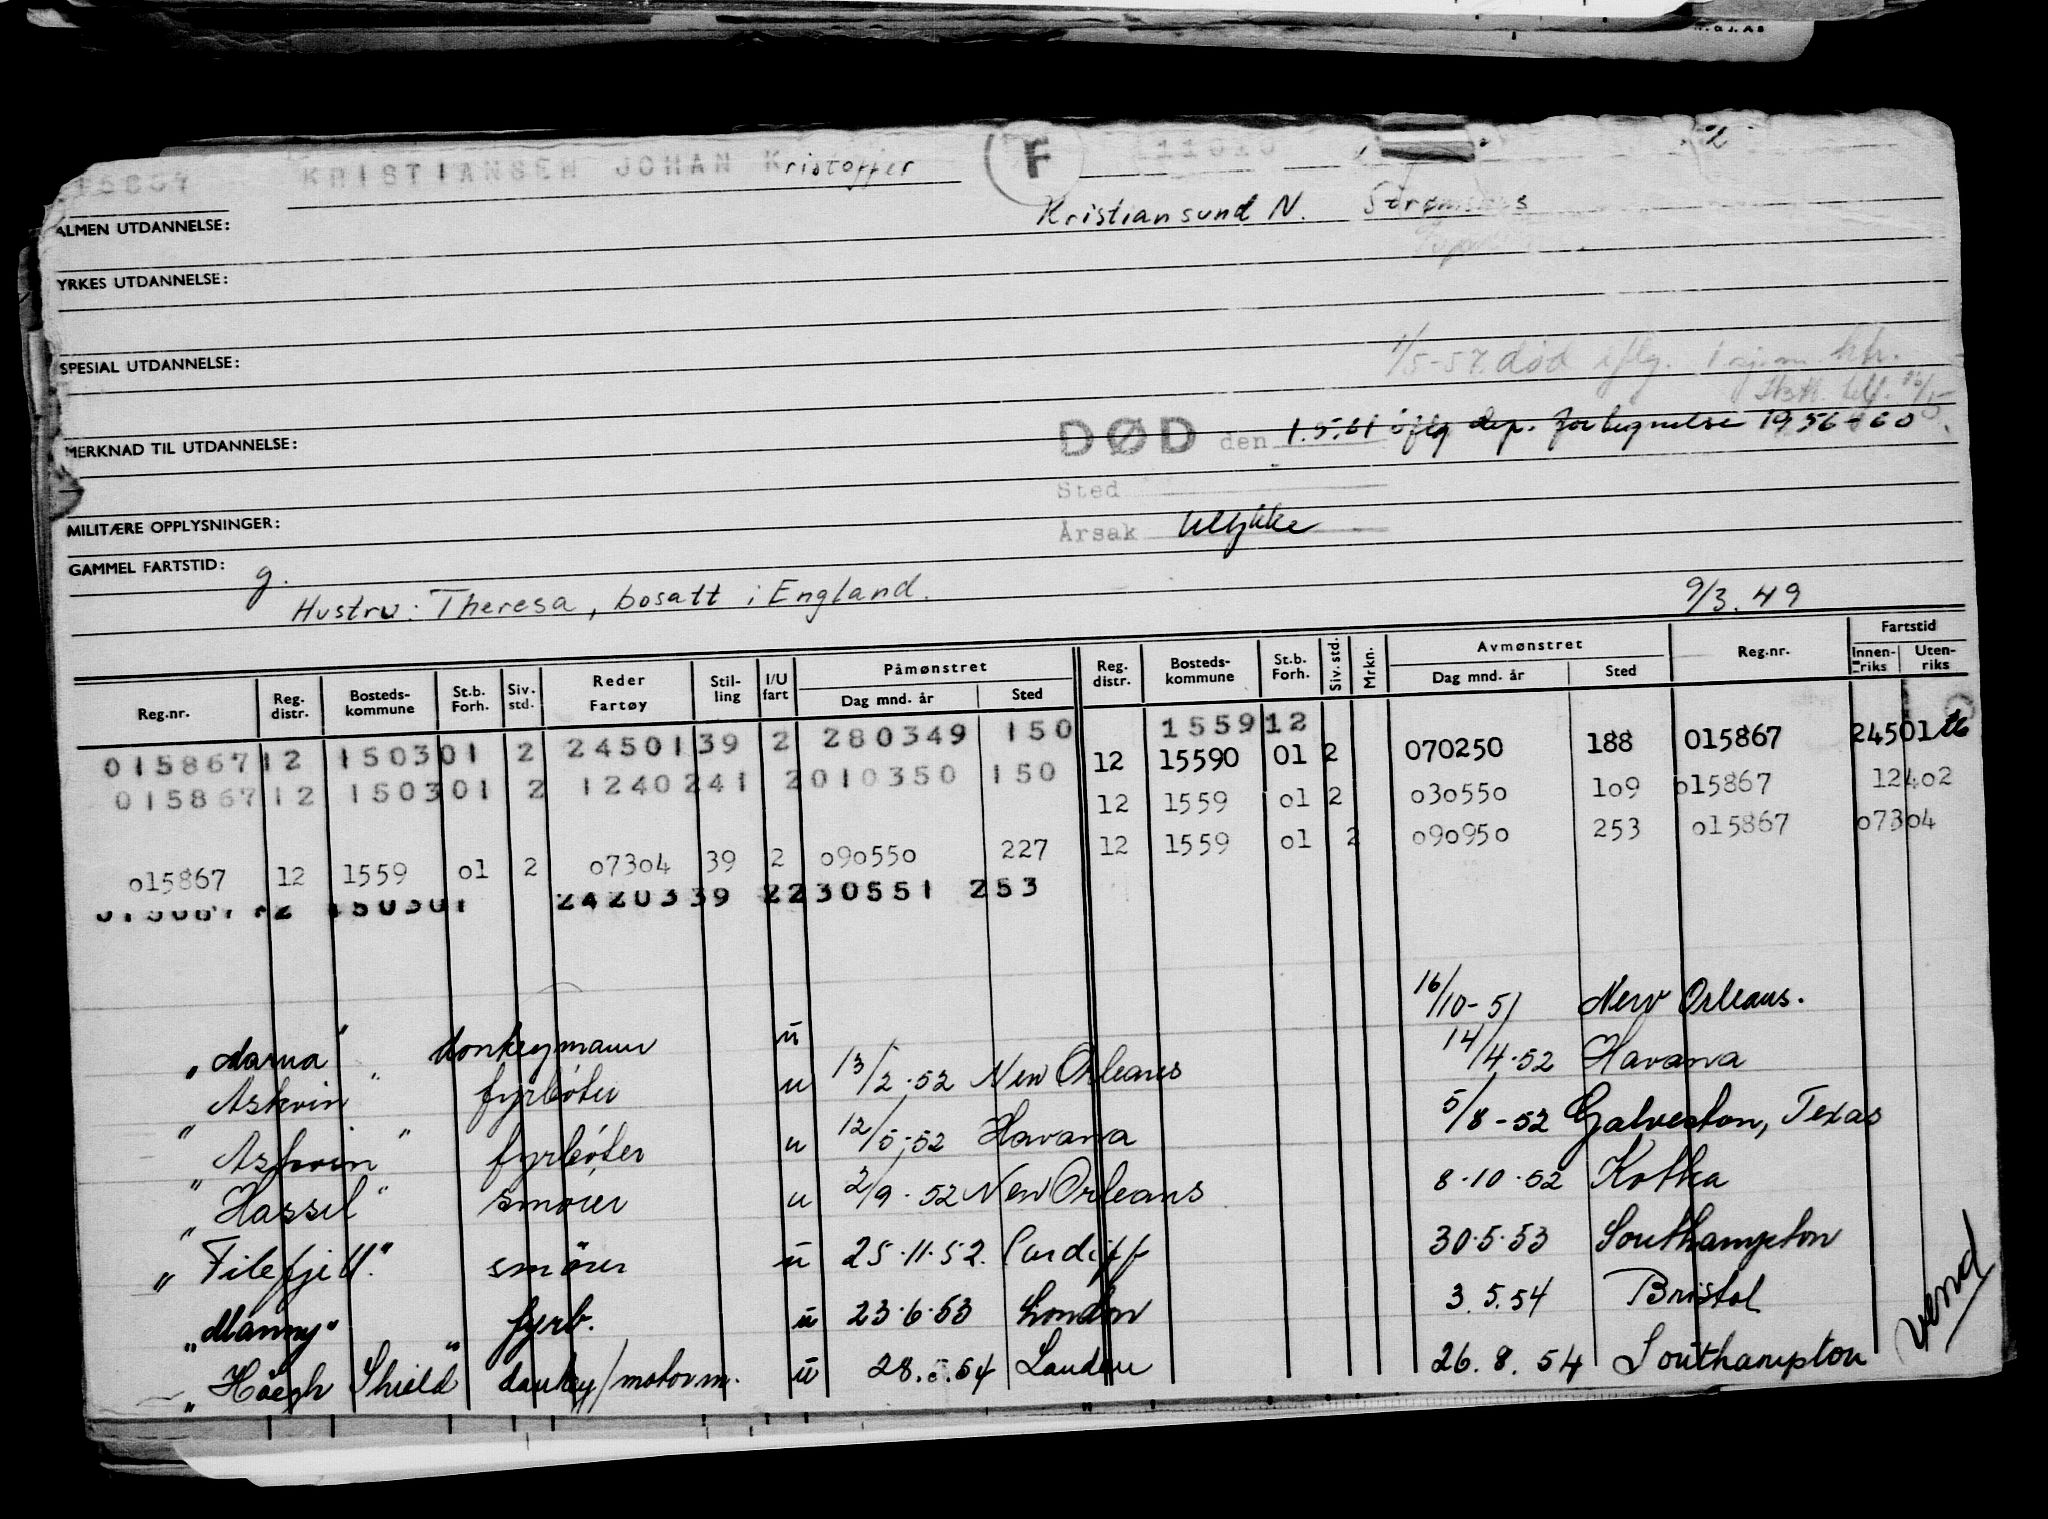 15867 KRISTIANSEN JOHAN Kristoffer F 11020
ALMEN UTDANNELSE: Kristiansund N.
YRKES UTDANNELSE:
1/5-57. død iflg.
SPESIAL UTDANNELSE:
DØD den 1.5.61 iflg dep. fortegnelse 1956-60
MERKNAD TIL UTDANNELSE:
Sted
MILITÆRE OPPLYSNINGER: Årsak Ulykke
GAMMEL FARTSTID: g.
Hustru: Theresa, bosatt i England. 9/3.49
Reg.nr. Reg. distr. Bosteds-kommune St.b. Forh. Siv. std. Reder Fartøy Stil-ling I/U fart Påmønstret Dag mnd. år Sted Reg. distr. Bosteds-kommune St.b. Forh. Siv. std. Mrkn. Avmønstret Dag mnd. år Sted Reg.nr. Fartstid Innen-riks Uten-riks
015867 12 1503 01 2 24501 39 2 280349 150 155912
12 15590 01 2 070250 188 015867 24501
015867 12 1503 01 2 12402 41 2 010350 150 12 1559 01 2 030550 109 015867 12402
015867 12 1559 01 2 07304 39 2 090550 227 12 1559 01 2 090950 253 015867 07304
015867 12 150301 24203 39 2 230551 253
donkeymann u 16/10-51 New Orleans.
"Askvin" fyrbøter u 13/2.52 New Orleans 14/4.52 Havana
"Askvin" fyrbøter u 12/5-52 Havana 5/8-52 Galveston, Texas
"Hassel" smører u 2/9.52 New Orleans 8.10.52 Kotka
"Filefjell" smører u 25.11.52. Cardiff 30.5.53 Southampton
"Manny" fyrb. u 23.6.53 London 3.5.54 Bristol
"Höegh Shield" donkey/motorm. u 28.5.54 London 26.8.54 Southampton
vend